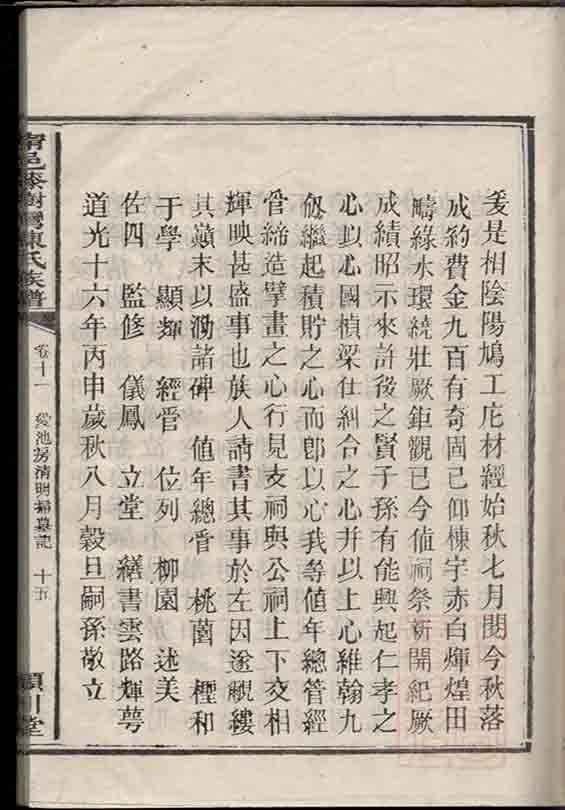 爰是相陰陽鳩工庀材經始秋七月閱今秋落
成約費金九百有奇固已仰棟宇赤白煇煌田
疇綠水環繞壯厥鉅觀已今值祠祭新開紀厥
成績昭示來許後之賢子孫有能興起仁孝之
心以心國楨梁仕糾合之心并以上心維翰九
伋繼起積貯之心而卽以心我等値年總管經
管締造擘畫之心行見支祠與公祠上下交相
輝映甚盛事也族人請書其事於左因遂覼縷
其顛末以泐諸碑　値年總管　桃菌　樫和
于學　顯輝　經管　位列　柳園　述美
佐四　監修　儀鳳　立堂　繕書雲路輝萼
道光十六年丙申歲秋八月穀旦嗣孫敬立
邑蔡樹灣陳氏族譜
卷十一　愛池房清明掃墓記　十五
潁川堂